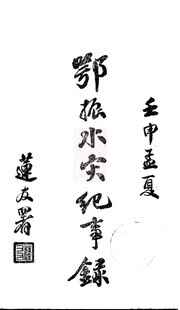 壬申孟夏
鄂振水灾纪事錄
蓮友署